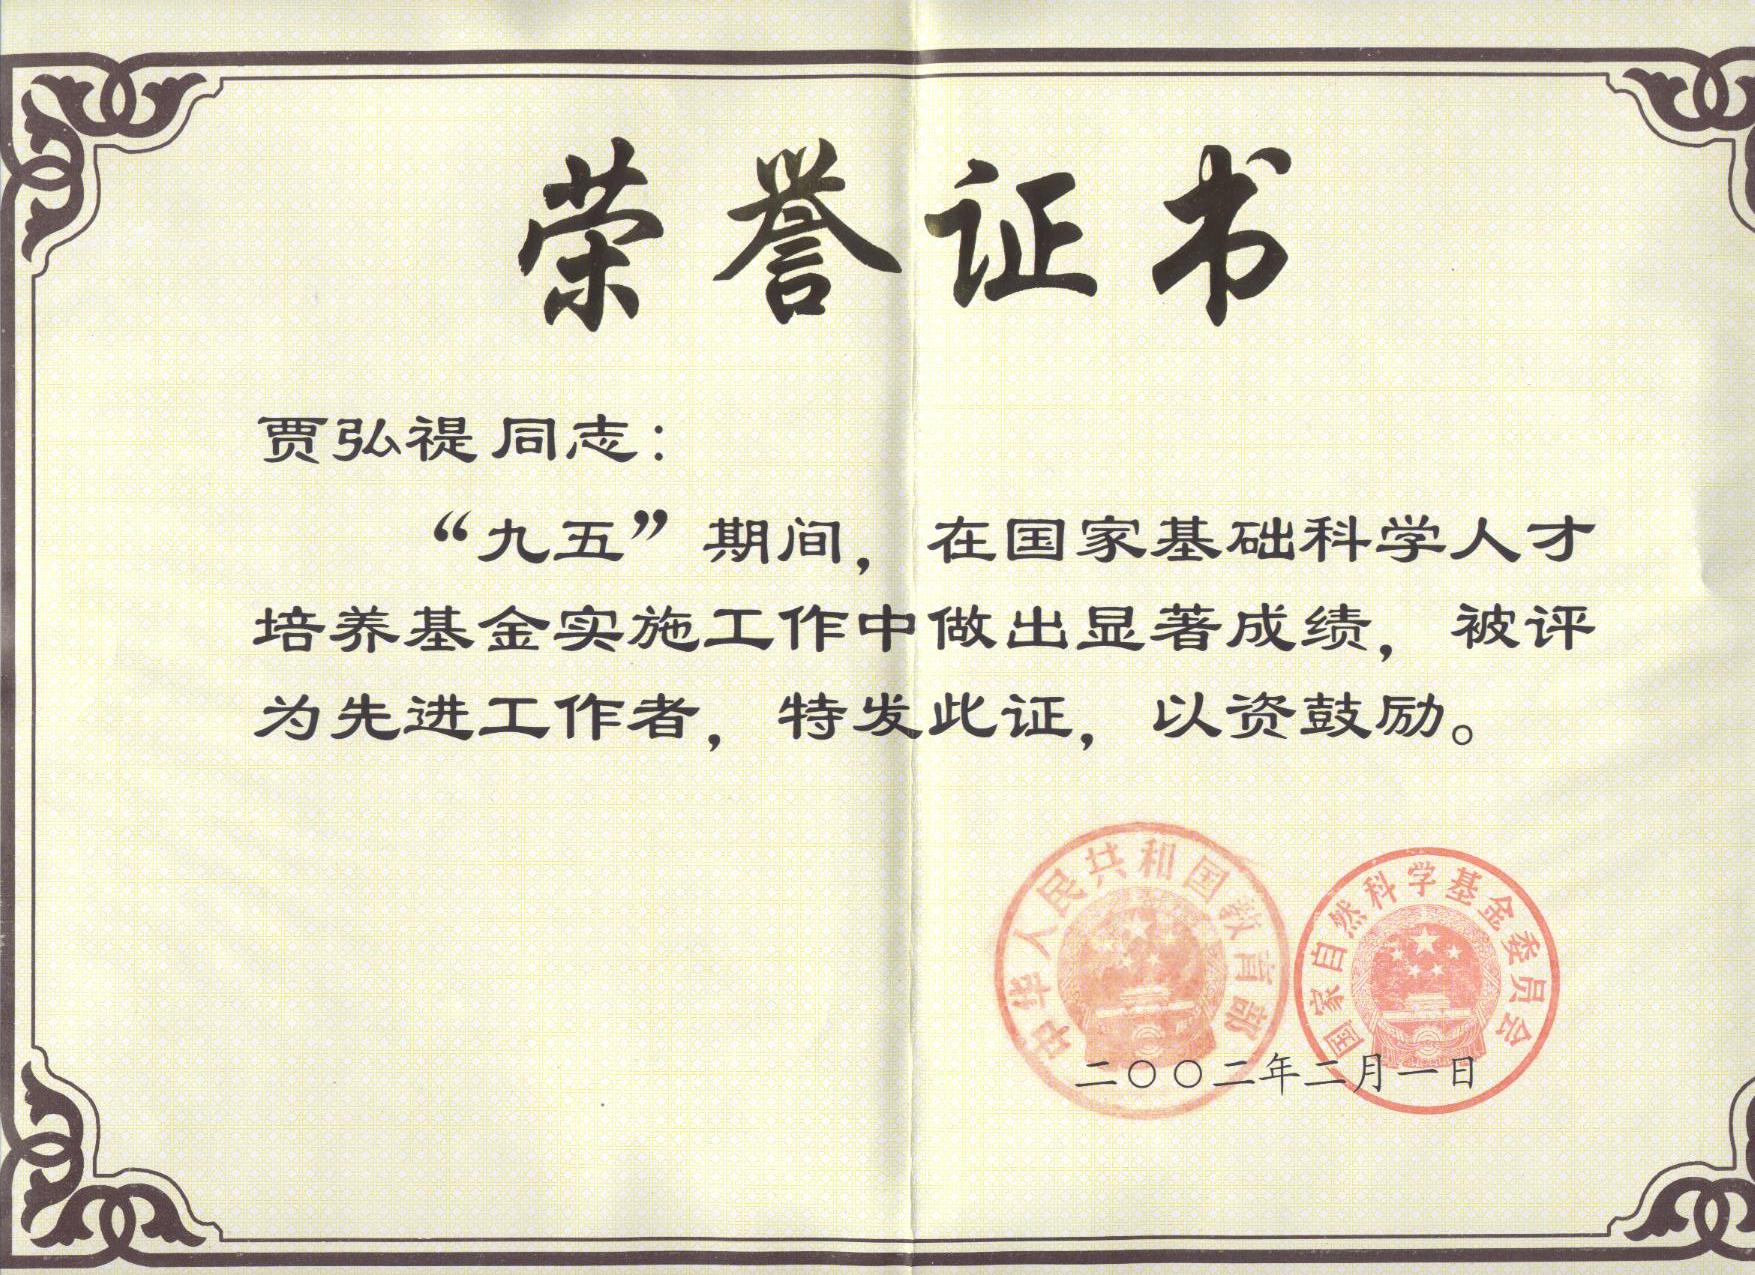 荣誉证书
贾弘禔同志：
“九五”期间，在国家基础科学人才
培养基金实施工作中做出显著成绩，被评
为先进工作者，特发此证，以资鼓励。
中华人民共和国教育部
国家自然科学基金委员会
二〇〇二年二月一日